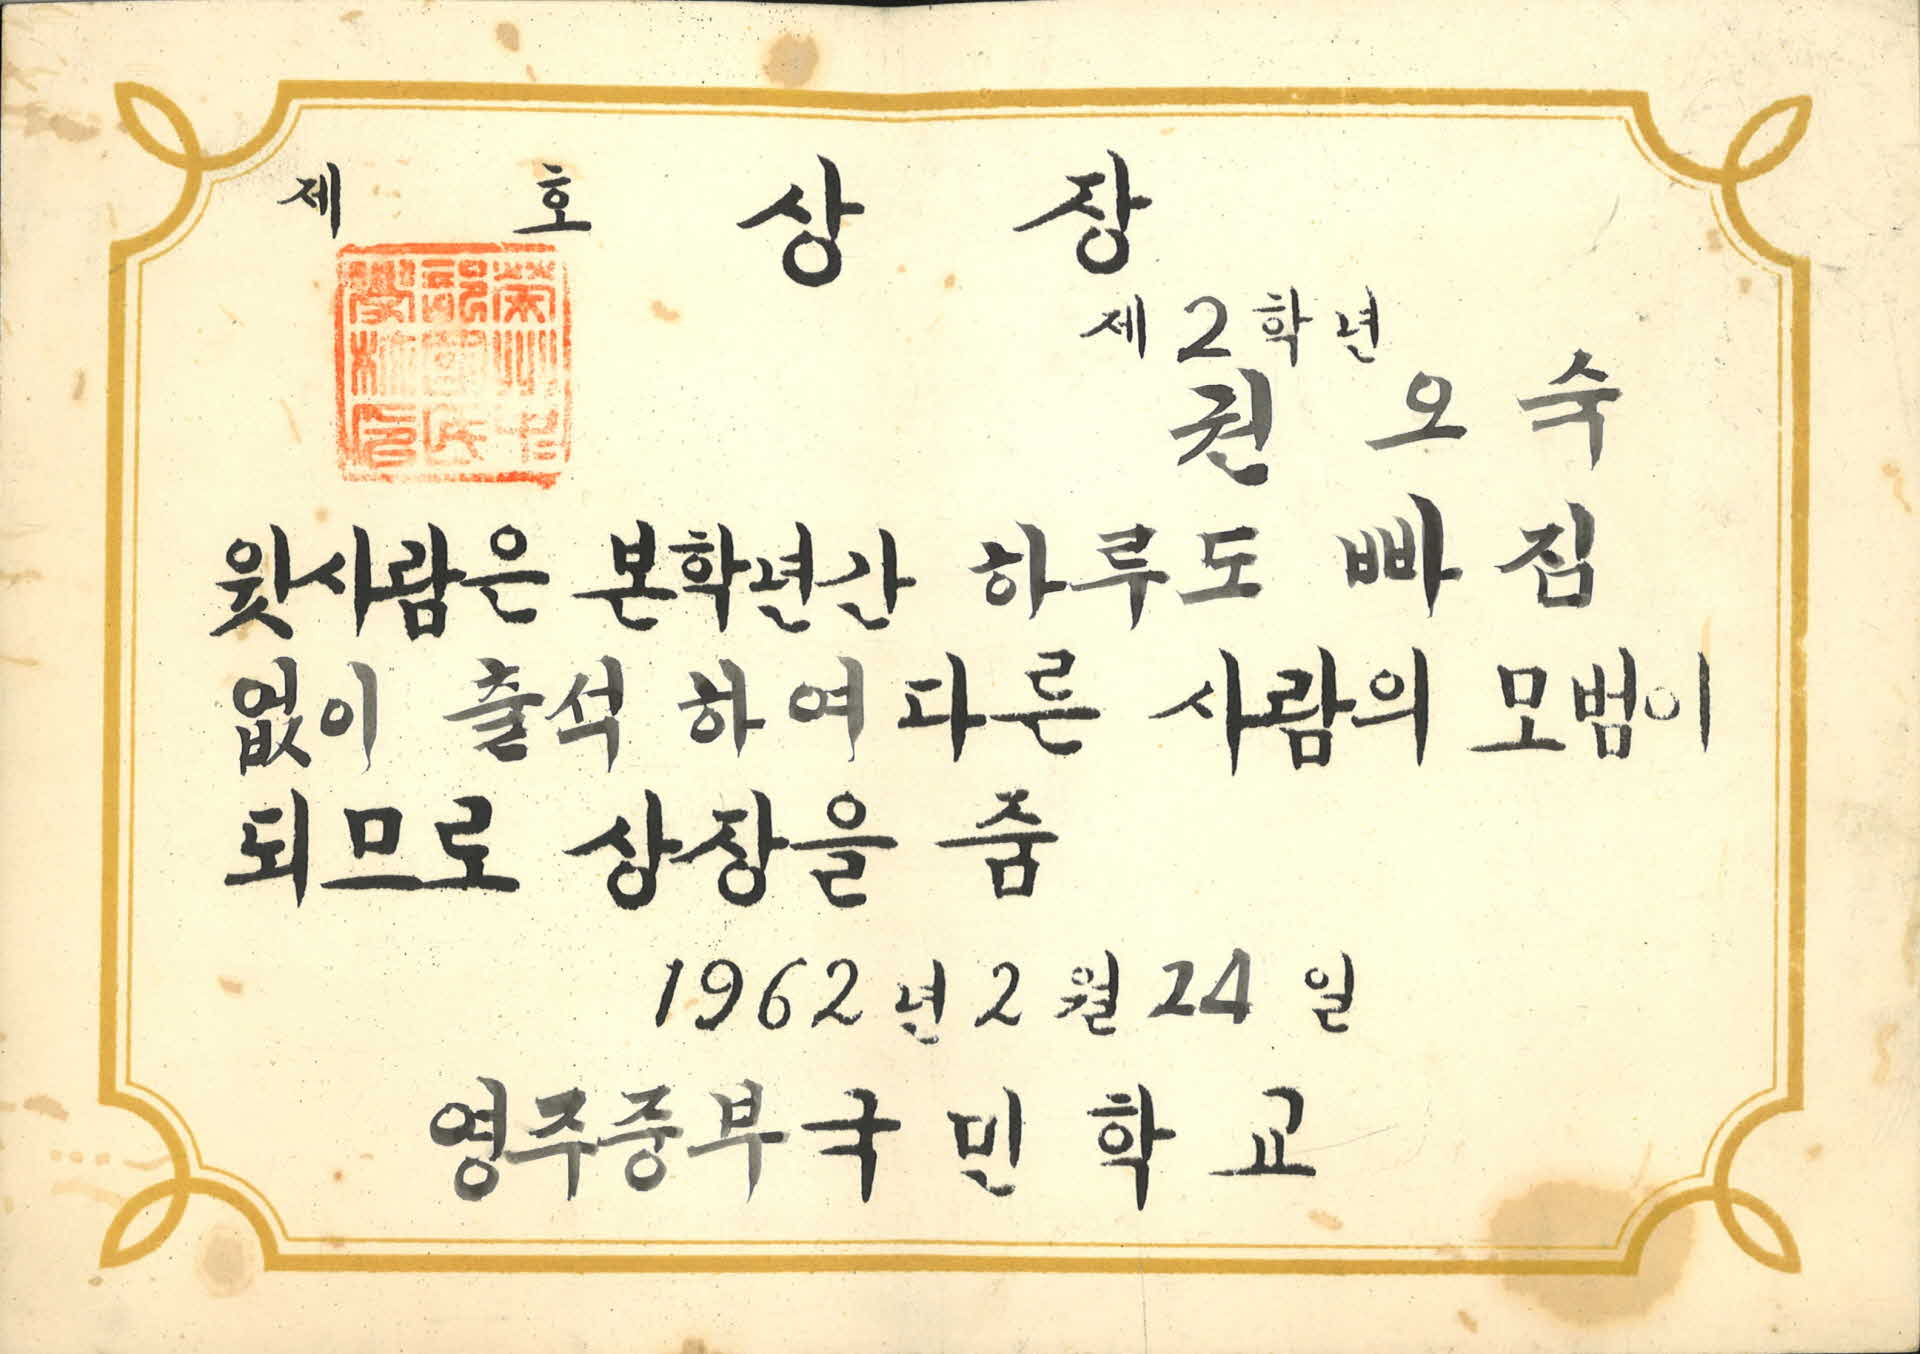 제 호 상 장
제 2 학년
권 오 숙
윗사람은 본학년간 하루도 빠 짐
없이 출석 하여 다른 사람의 모범이
되므로 상장을 줌
1962 년 2 월 24 일
영주중부국민학교